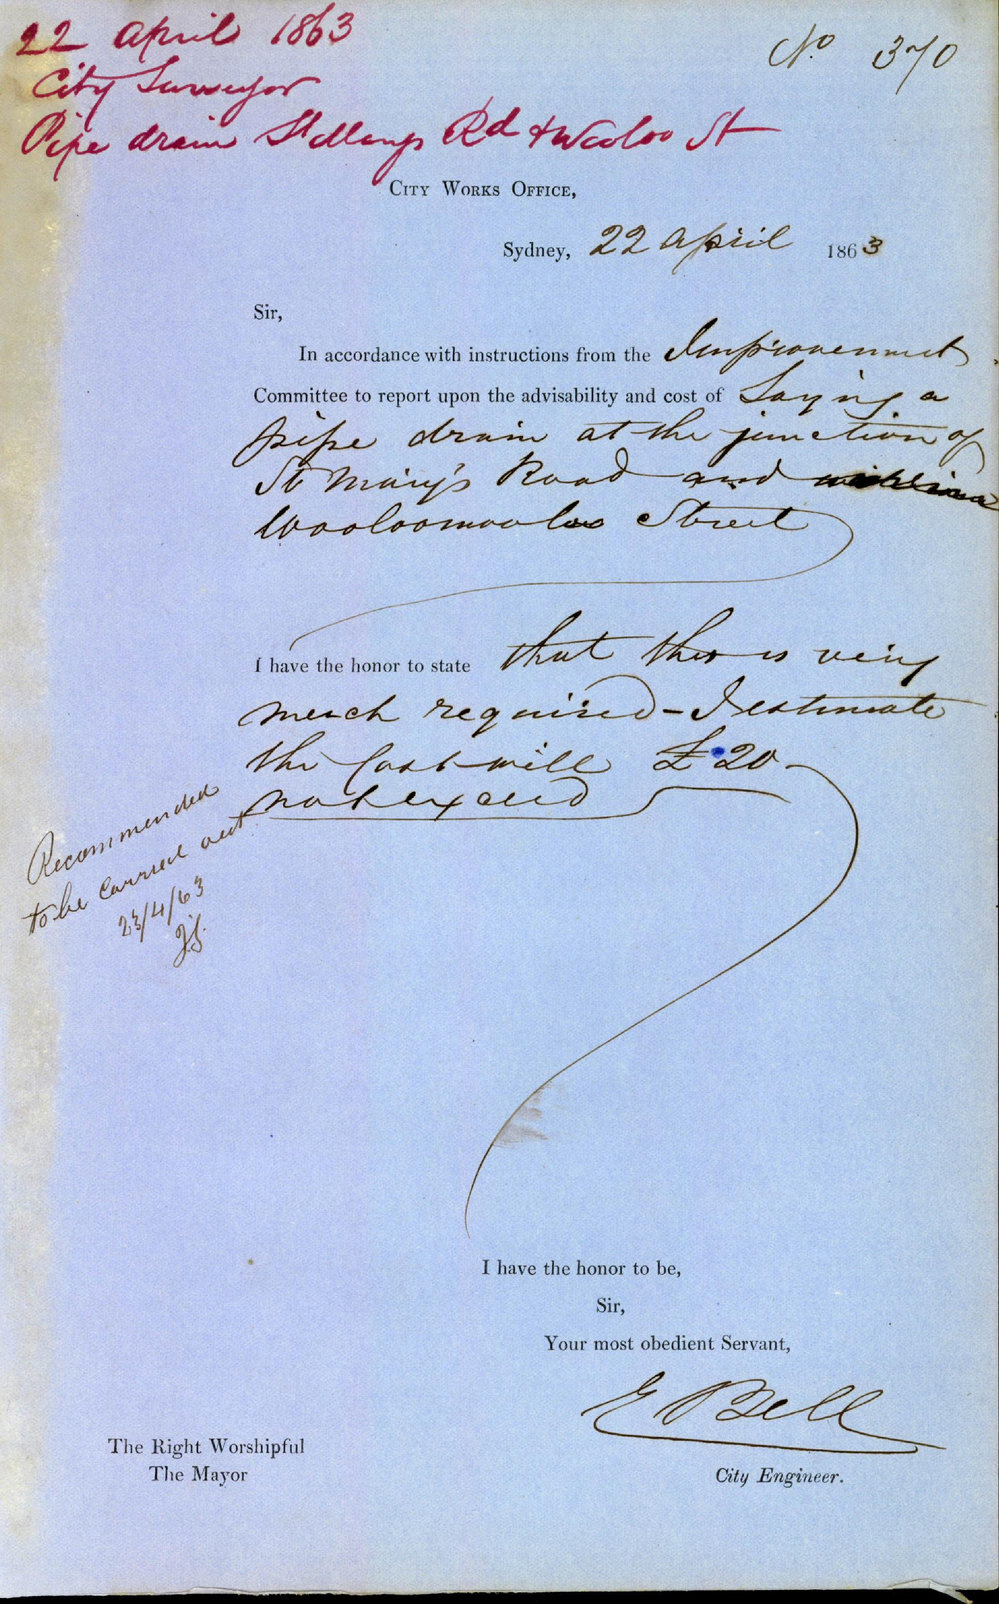 22 April 1863
No 370
City Surveyor
Pipe drain St Marys Rd & Wooloo St
City Works Office,
Sydney, 22 April 1863
Sir,
In accordance with instructions from the Improvement
Committee to report upon the advisability and cost of Laying a
pipe drain at the junction of
St Mary's Road and
Wooloomooloo Street
I have the honor to state that this is very
much required - I estimate
the Cost will £20
not exceed
Recommended
to be carried out
23/4/63
I have the honor to be,
Sir,
Your most obedient Servant,
E Bell
The Right Worshipful
The Mayor
City Engineer.